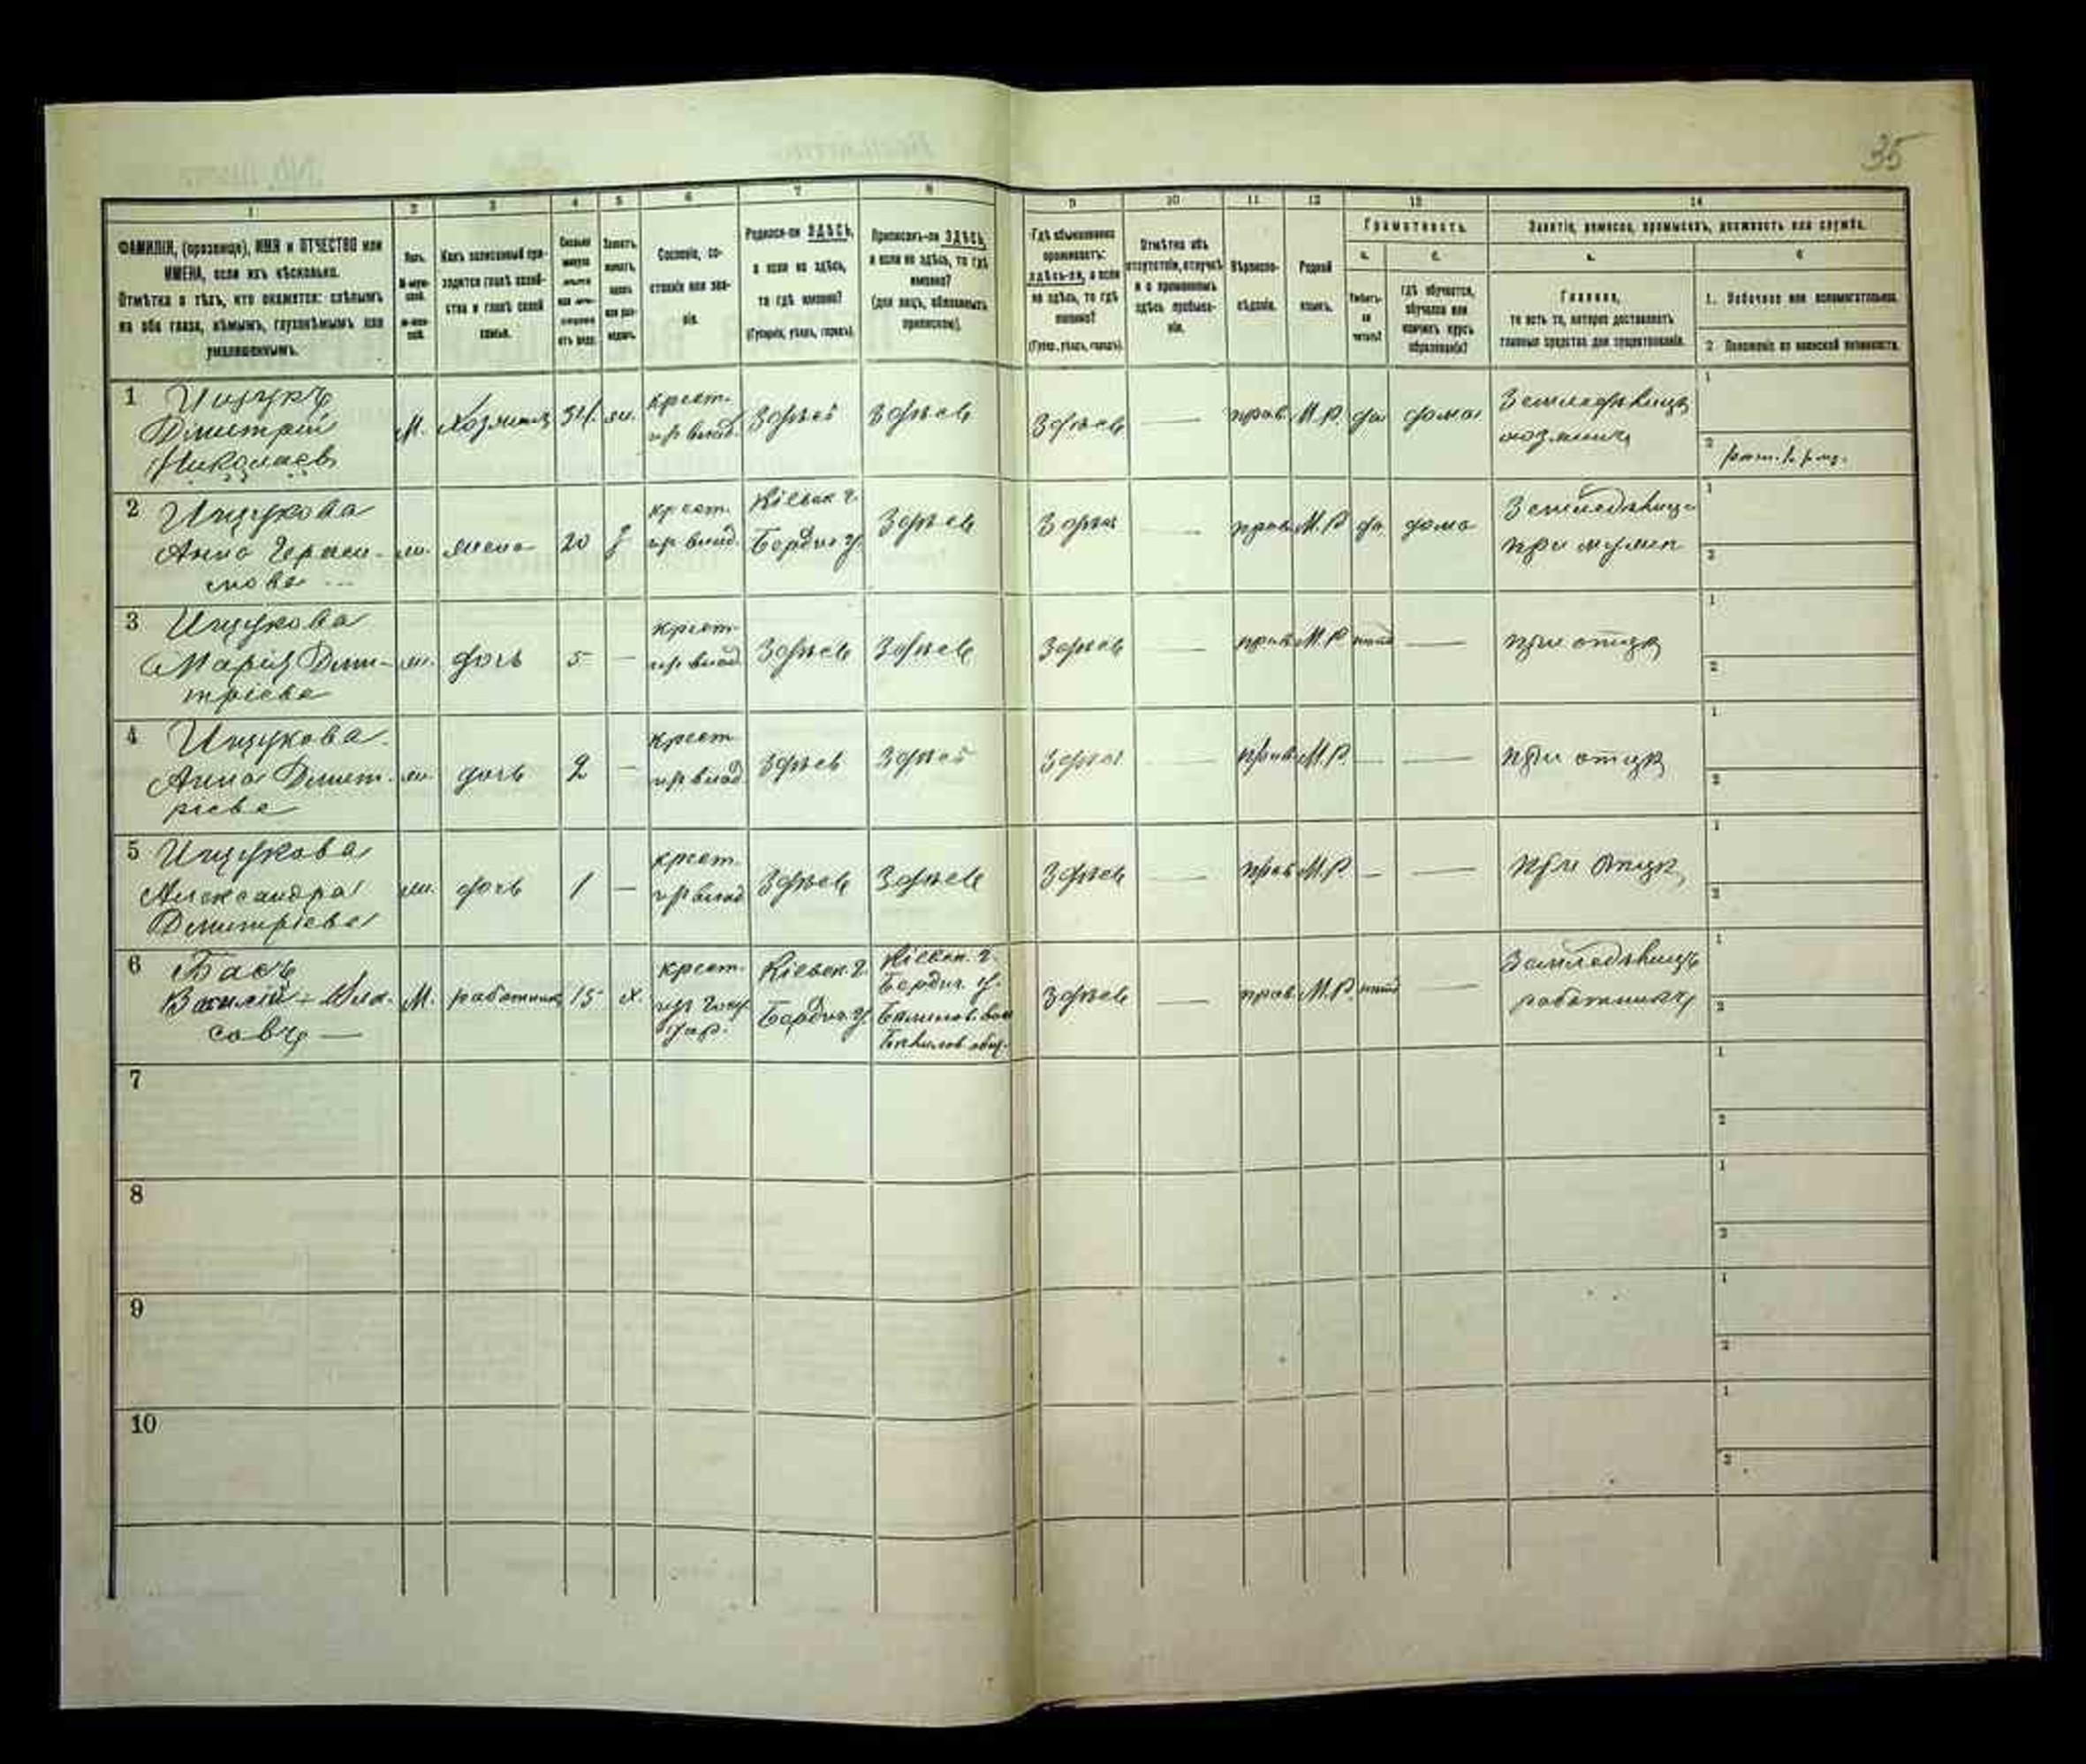 35
1 2 3 4 5 6 7 8 9 10 11 12 13 14
ФАМИЛІЯ, (прозвище), ИМЯ и ОТЧЕСТВО или
ИМЕНА, если ихъ нѣсколько.
Отмѣтка о тѣхъ, кто окажется: слѣпымъ
на оба глаза, нѣмымъ, глухонѣмымъ или
умалишеннымъ.
Полъ.
М-муж-
ской.
Ж-жен-
скій.
Какъ записанный при-
ходится главѣ хозяй-
ства и главѣ своей
семьи.
Сколько
минуло
лѣтъ
отъ роду.
Холостъ,
женатъ,
вдовъ
или раз-
веденъ.
Сословіе, со-
стояніе или зва-
ніе.
Родился-ли ЗДѢСЬ,
а если не здѣсь,
то гдѣ именно?
(Губернія, уѣздъ, городъ).
Приписанъ-ли ЗДѢСЬ,
а если не здѣсь, то гдѣ
именно?
(для лицъ, обязанныхъ
припискою).
Гдѣ обыкновенно
проживаетъ:
здѣсь-ли, а если
не здѣсь, то гдѣ
именно?
(Губер., уѣздъ, городъ).
Отмѣтка объ
отсутствіи, отлучкѣ
и о временномъ
здѣсь пребыва-
ніи.
Вѣроиспо-
вѣданіе.
Родной
языкъ.
Грамотность.
а. б.
Умѣетъ-
ли
читать?
гдѣ обучается,
обучался или
кончилъ курсъ
образованія?
Занятіе, ремесло, промыселъ, должность или служба.
а. б
Главное,
то есть то, которое доставляетъ
главныя средства для существованія.
1. Побочное или вспомогательное.
2. Положеніе по воинской повинности.
1 Ищукъ
Дмитрій
Николаевъ
М. Хозяинъ 34 жн.
крест.
изъ влад.
Здѣсь Здѣсь Здѣсь — прав. М.Р. да дома
Земледѣлецъ
хозяинъ
1
2
2 Ищукова
Анна Гераси-
мова
ж. жена 20 з
крест.
изъ влад.
Кіевск. г.
Бердич. у.
Здѣсь Здѣсь — прав. М.Р. да дома
Земледѣлица
при мужѣ
1
2
3 Ищукова
Марія Дми-
тріева
ж. дочь 5 —
крест.
изъ влад.
Здѣсь Здѣсь Здѣсь — прав. М.Р. нѣтъ — при отцѣ
1
2
4 Ищукова
Анна Дмит-
ріева
ж. дочь 2 —
крест.
изъ влад.
Здѣсь Здѣсь Здѣсь — прав. М.Р. — — при отцѣ
1
2
5 Ищукова
Александра
Дмитріева
ж. дочь 1 —
крест.
изъ влад.
Здѣсь Здѣсь Здѣсь — прав. М.Р. — — при отцѣ
1
2
6 Басъ
Василій Вла-
совъ —
М. работникъ 15 х.
крест.
изъ госу-
дар.
Кіевск. г.
Бердич. у.
Кіевск. г.
Бердич. у.
Здѣсь — прав. М.Р. нѣтъ —
Земледѣлецъ
работникъ
1
2
7
1
2
8
1
2
9
1
2
10
1
2